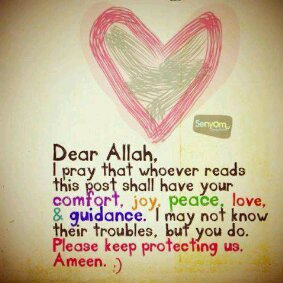 Senyom
Dear Allah,
I pray that whoever reads
this post shall have your
comfort, joy, peace, love,
& guidance. I may not know
their troubles, but you do.
Please keep protecting us.
Ameen. :)